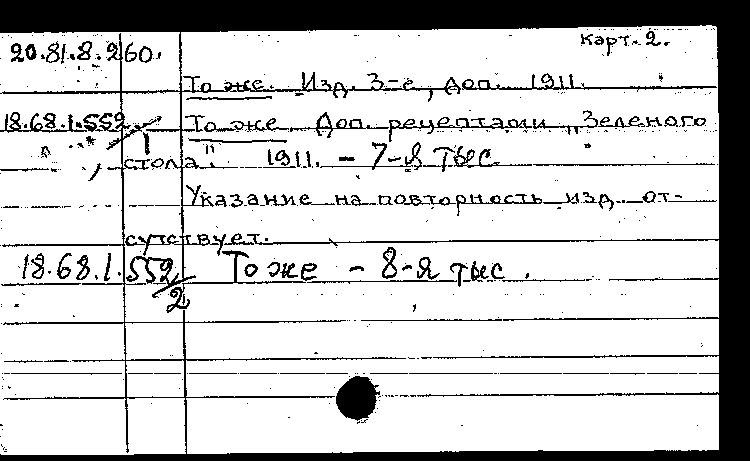 карт. 2.
20.81.8.260.
То же. Изд. 3-е, доп. 1911.
18.68.1.552/1 То же. Доп. рецептами „Зеленого
стола". 1911. - 7-я тыс.
Указание на повторность изд. от-
сутствует.
18.68.1.552/2 То же - 8-я тыс.